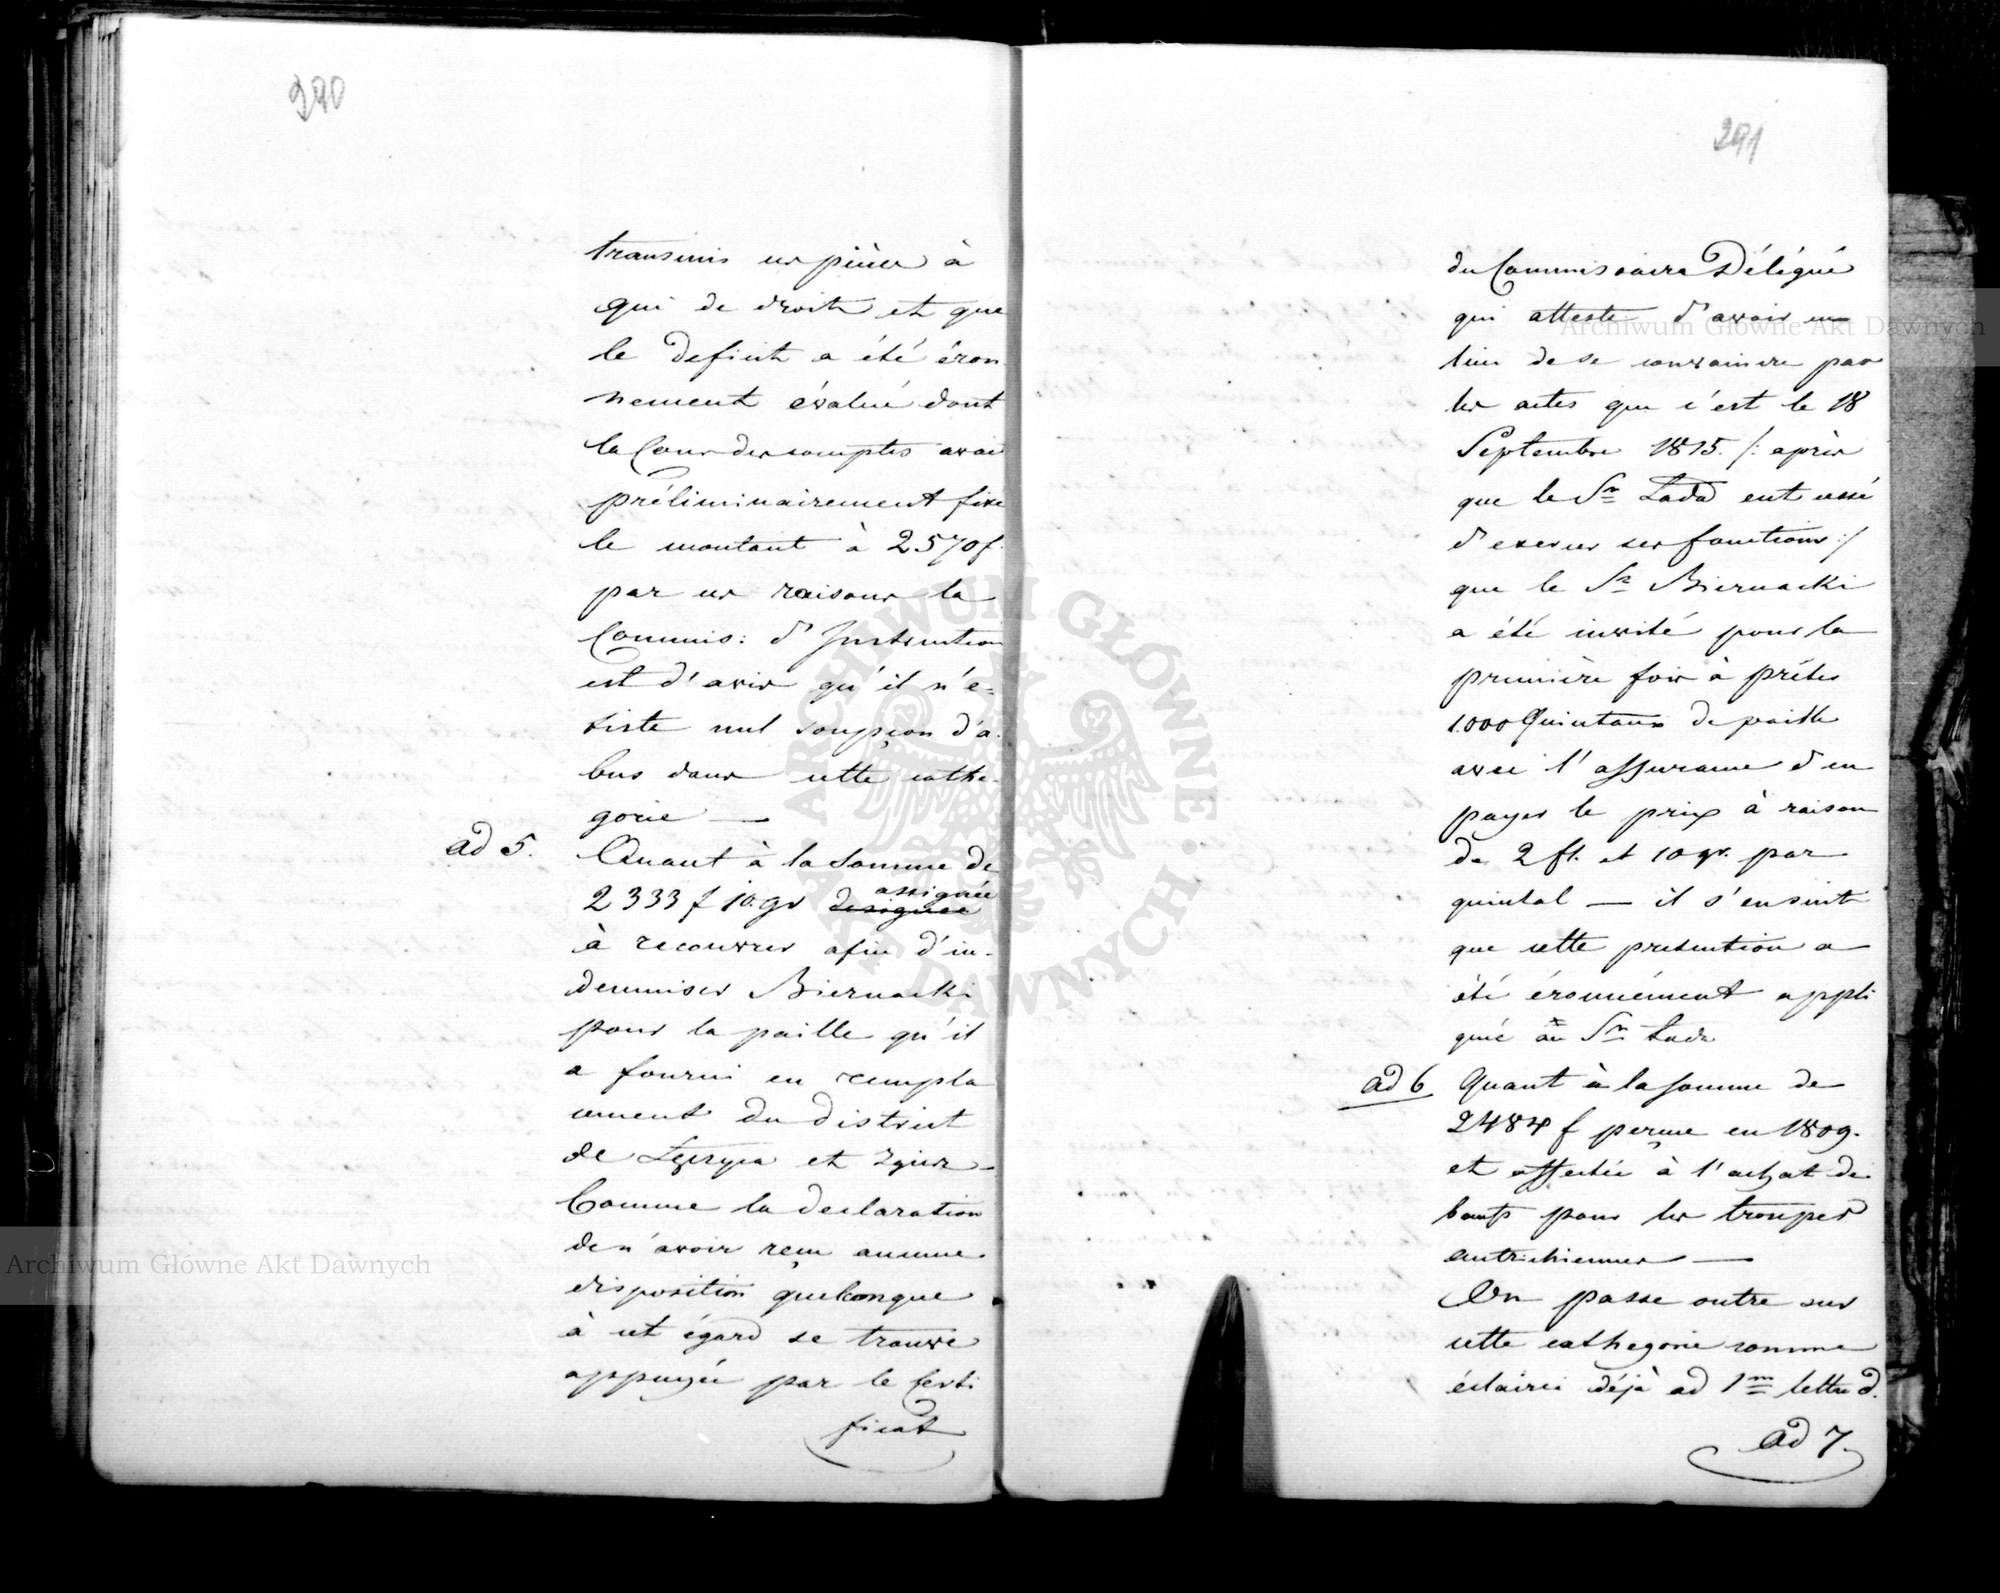 290
transmis ces pièces à
qui de droit et que
le deficit a été éron
nement évalué dont
la Cour des comptes avait
préliminairement fixé
le montant à 2570 f.
par ces raisons la
Commis: d'Instruction
est d'avis qu'il n'e-
xiste nul soupçon d'a-
bus dans cette cathe-
gorie —
ad 5. Quant à la somme de
2333 f 10 gr designée assignée
à recouvrer afin d'in-
demniser Biernacki
pour la paille qu'il
a fourni en rempla
cement du district
de et Zgierz
Comme la declaration
de n'avoir reçu aucune
disposition quelconque
à cet égard se trouve
appuyée par le Certi
ficat
291
du Commissaire Délégué
qui atteste d'avoir eu
lieu de se convaincre par
les actes que c'est le 18
Septembre 1815. /: après
que le Sr Lada eut cessé
d'exercer ses fonctions :/
que le Sr Biernacki
a été invité pour la
première fois à prêter
1.000 Quintaux de paille
avec l'assurance d'en
payer le prix à raison
de 2 fl. et 10 gr. par
quintal — il s'ensuit
que cette pretention a
été éronnément appli
quée au Sr Lada
ad 6 Quant à la somme de
2484 f perçue en 1809.
et affectée à l'achat de
bœufs pour les troupes
autrichiennes —
On passe outre sur
cette cathegorie comme
éclairci déjà ad 1m lettre d.
ad 7.
Archiwum Główne Akt Dawnych
Archiwum Główne Akt Dawnych
ARCHIWUM GŁÓWNE AKT DAWNYCH